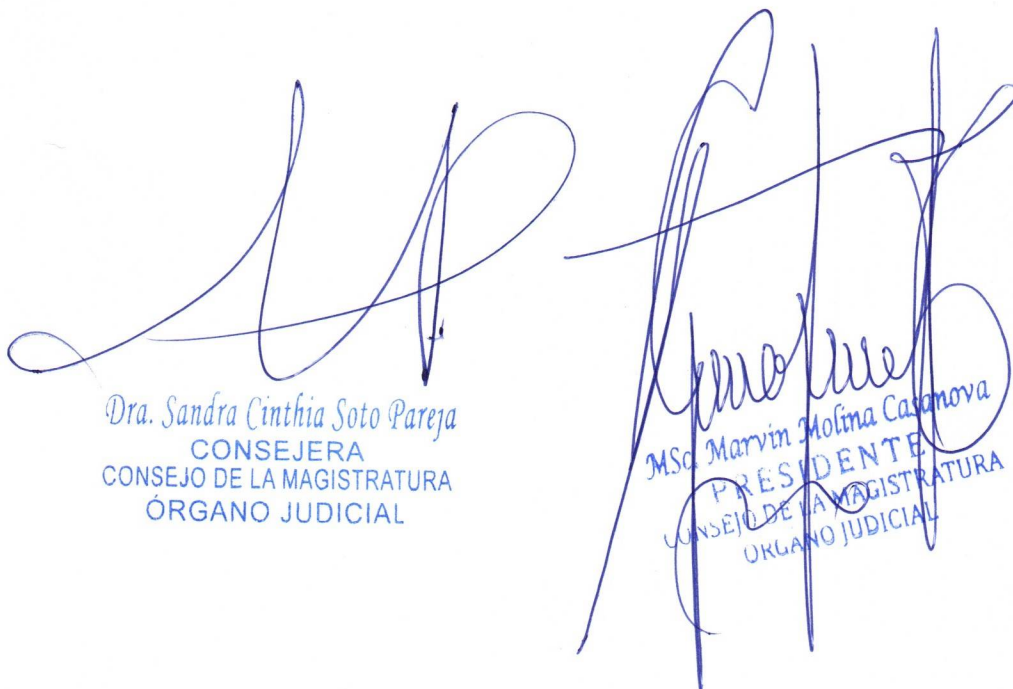 Dra. Sandra Cinthia Soto Pareja
CONSEJERA
CONSEJO DE LA MAGISTRATURA
ÓRGANO JUDICIAL
MSc. Marvin Molina Casanova
PRESIDENTE
CONSEJO DE LA MAGISTRATURA
ÓRGANO JUDICIAL